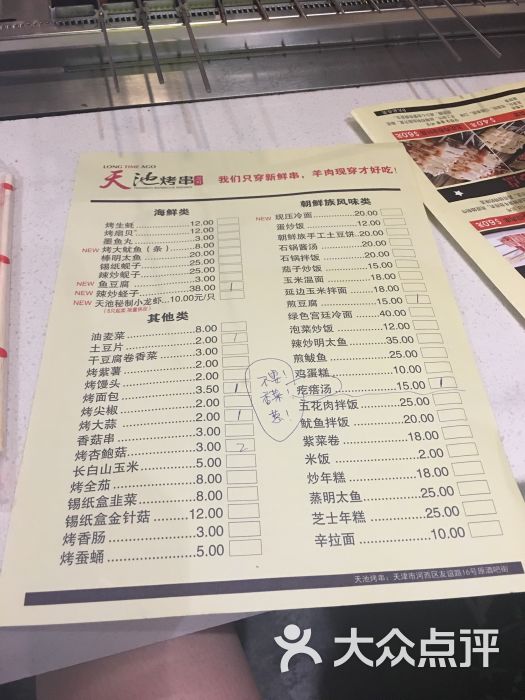 LONG TIME AGO
天池烤串
我们只穿新鲜串，羊肉现穿才好吃！
海鲜类
烤生蚝 12.00
烤扇贝 12.00
墨鱼丸 3.00
NEW 烤大鱿鱼（条） 8.00
棒明太鱼 20.00
锡纸蚬子 25.00
辣炒蚬子 25.00
NEW 鱼豆腐 3.00 1
NEW 辣炒蛏子 38.00
NEW 天池秘制小龙虾 10.00元/只
其他类
油麦菜 8.00
土豆片 2.00 1
干豆腐卷香菜 3.00
烤紫薯 2.00
烤馒头 2.00
烤面包 3.50 1
烤尖椒 2.00
烤大蒜 2.00 1
香菇串 3.00
烤杏鲍菇 3.00 2
长白山玉米 5.00
烤全茄 8.00
锡纸盒韭菜 8.00
锡纸盒金针菇 12.00
烤香肠 3.00
烤蚕蛹 5.00
朝鲜族风味类
NEW 现压冷面 20.00
蛋炒饭 12.00
朝鲜族手工土豆饼 20.00
石锅酱汤 20.00
石锅拌饭 20.00
茄子炒饭 15.00
玉米温面 18.00
延边玉米拌面 18.00
煎豆腐 15.00 1
绿色宫廷冷面 40.00
泡菜炒饭 12.00
辣炒明太鱼 35.00
煎鲅鱼 25.00
鸡蛋糕 10.00
疙瘩汤 15.00 1
五花肉拌饭 25.00
鱿鱼拌饭 20.00
紫菜卷 18.00
米饭 2.00
炒年糕 18.00
蒸明太鱼 25.00
芝士年糕 25.00
辛拉面 10.00
不要！
香菜！
葱！
天池烤串：天津市河西区友谊路16号原酒吧街
大众点评